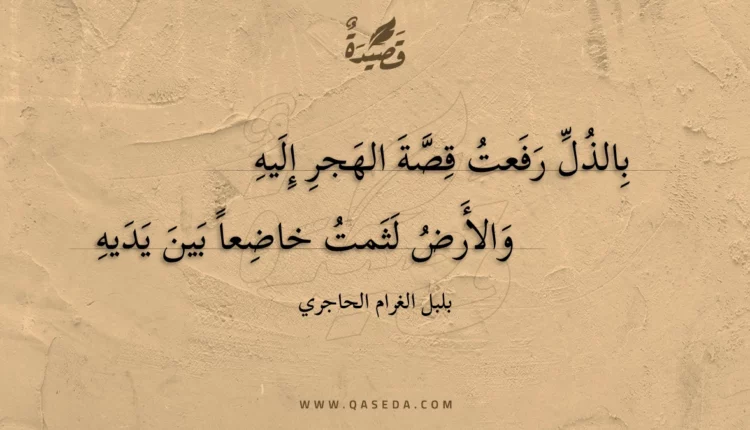 قَصِيدَةٌ
بِالذُلِّ رَفَعتُ قِصَّةَ الهَجرِ إِلَيهِ
وَالأَرضُ لَثَمتُ خاضِعاً بَينَ يَدَيهِ
بلبل الغرام الحاجري
WWW.QASEDA.COM